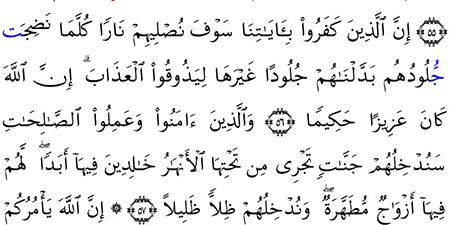 ﴿٥٥﴾ إِنَّ الَّذِينَ كَفَرُوا۟ بِـَٔايَـٰتِنَا سَوْفَ نُصْلِيهِمْ نَارًا كُلَّمَا نَضِجَتْ
جُلُودُهُم بَدَّلْنَـٰهُمْ جُلُودًا غَيْرَهَا لِيَذُوقُوا۟ الْعَذَابَ ۗ إِنَّ اللَّهَ
كَانَ عَزِيزًا حَكِيمًا ﴿٥٦﴾ وَالَّذِينَ ءَامَنُوا۟ وَعَمِلُوا۟ الصَّـٰلِحَـٰتِ
سَنُدْخِلُهُمْ جَنَّـٰتٍ تَجْرِى مِن تَحْتِهَا الْأَنْهَـٰرُ خَـٰلِدِينَ فِيهَآ أَبَدًا ۖ لَّهُمْ
فِيهَآ أَزْوَٰجٌ مُّطَهَّرَةٌ ۖ وَنُدْخِلُهُمْ ظِلًّا ظَلِيلًا ﴿٥٧﴾ ۞ إِنَّ اللَّهَ يَأْمُرُكُمْ